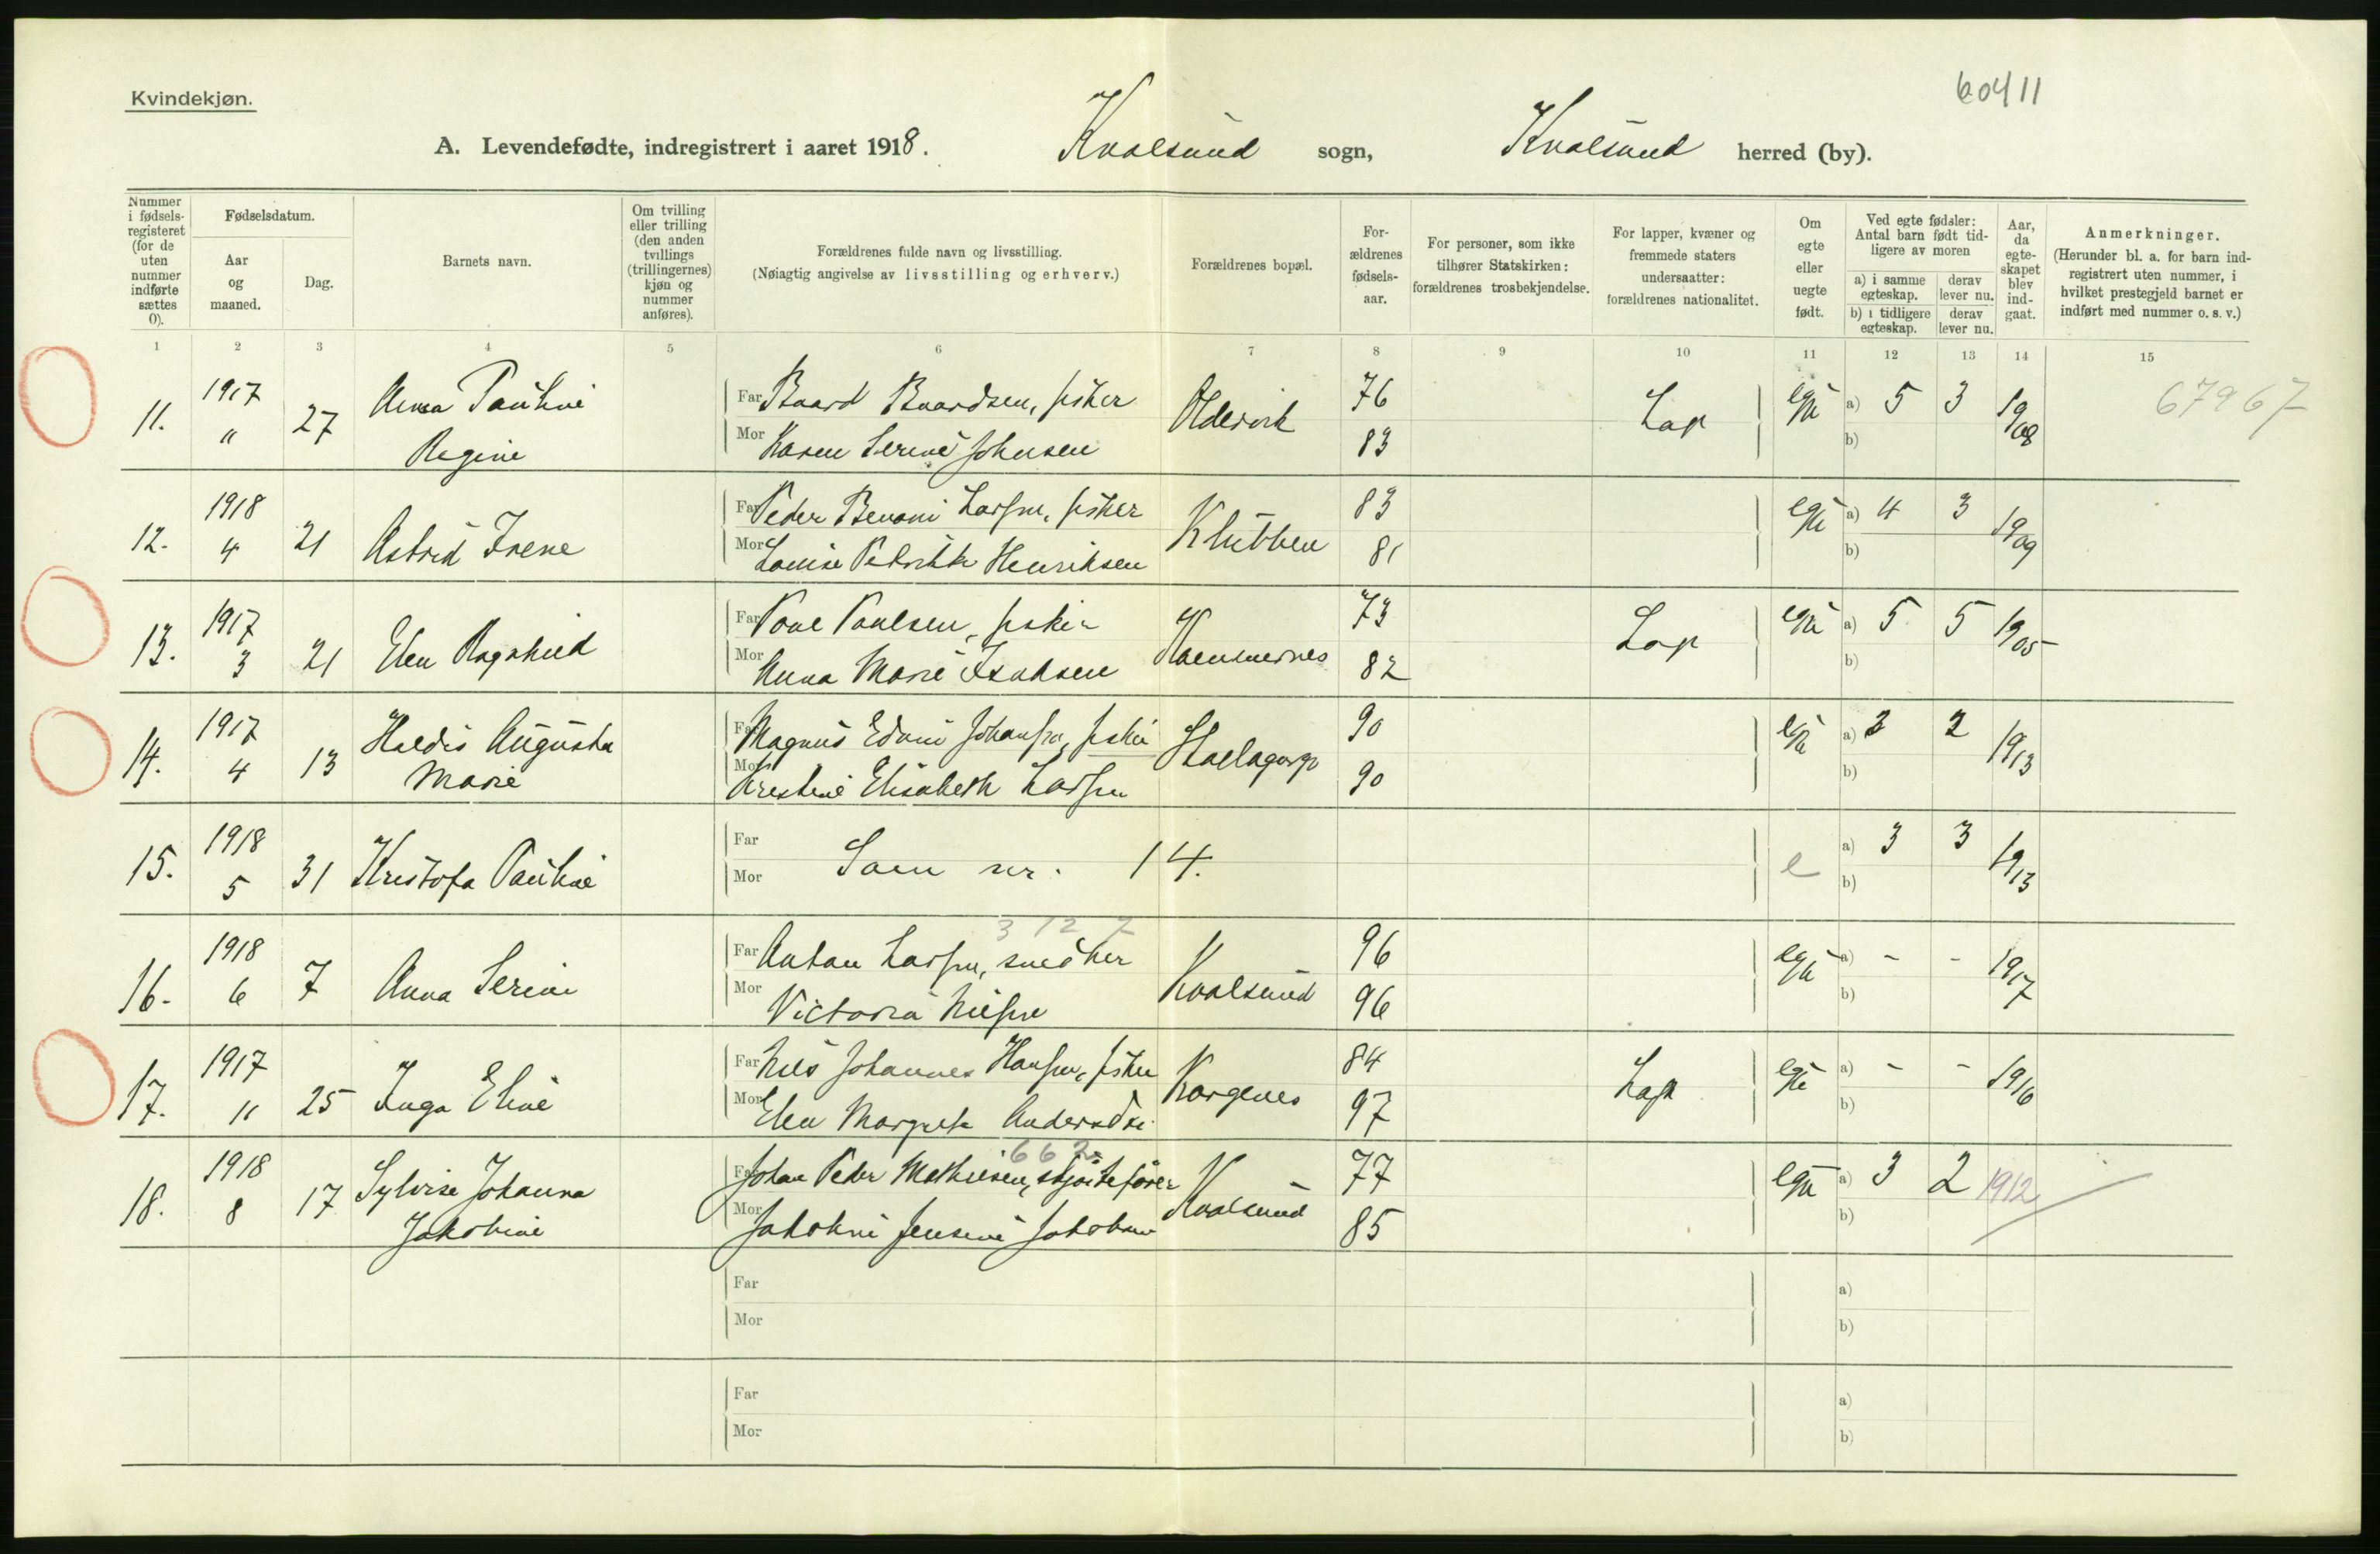 60411
Kvindekjøn.
A. Levendefødte, indregistrert i aaret 1918. Kvalsund sogn, Kvalsund herred (by).
Nummer i fødsels-registeret (for de uten nummer indførte sættes 0).
Fødselsdatum.
Aar og maaned.
Dag.
Barnets navn.
Om tvilling eller trilling (den anden tvillings (trillingernes) kjøn og nummer anføres).
Forældrenes fulde navn og livsstilling.
(Nøiagtig angivelse av livsstilling og erhverv.)
Forældrenes bopæl.
For-ældrenes fødsels-aar.
For personer, som ikke tilhører Statskirken: forældrenes trosbekjendelse.
For lapper, kvæner og fremmede staters undersaatter: forældrenes nationalitet.
Om egte eller uegte født.
Ved egte fødsler: Antal barn født tid-ligere av moren
a) i samme egteskap.
derav lever nu.
b) i tidligere egteskap.
derav lever nu.
Aar, da egte-skapet blev ind-gaat.
Anmerkninger.
(Herunder bl. a. for barn ind-registrert uten nummer, i hvilket prestegjeld barnet er indført med nummer o. s. v.)
1 2 3 4 5 6 7 8 9 10 11 12 13 14 15
11. 1917 11 27 Anna Pauline Regine
Far Baard Baardsen, fisker Oldervik 76 Lap egte a) 5 3 1908 67967
Mor Karen Serine Johnsen 83 b)
12. 1918 4 21 Astrid Irene
Far Peder Benoni Larsen, fisker Klubben 83 egte a) 4 3 1909
Mor Louise Petrikke Henriksen 81 b)
13. 1917 3 21 Elen Ragnhild
Far Poul Poulsen, fisker 73 Lap egte a) 5 5 1905
Mor Anna Marie Isaksen 82 b)
14. 1917 4 13 Haldis Augusta Marie
Far Magnus Edvin Johansen, fisker 90 egte a) 2 2 1913
Mor Kristine Elisabeth Larsen 90 b)
15. 1918 5 31 Kristofa Pauline
Far Som nr. 14. e a) 3 3 1913
Mor b)
3 12 7
16. 1918 6 7 Anna Serine
Far Anton Larsen, snedker Kvalsund 96 egte a) - - 1917
Mor Victoria Nilsen 96 b)
17. 1917 11 25 Inga Eline
Far Nils Johannes Hansen, fisker Kargenes 84 Lap egte a) - - 1916
Mor Elen Margrete Andersdtr. 97 b)
662
18. 1918 8 17 Sylvise Johanna Jakobine
Far Johan Peder Mathiesen, skjøitefører Kvalsund 77 egte a) 3 2 1912
Mor Jakobine Jensine Jakobsen 85 b)
Far a)
Mor b)
Far a)
Mor b)